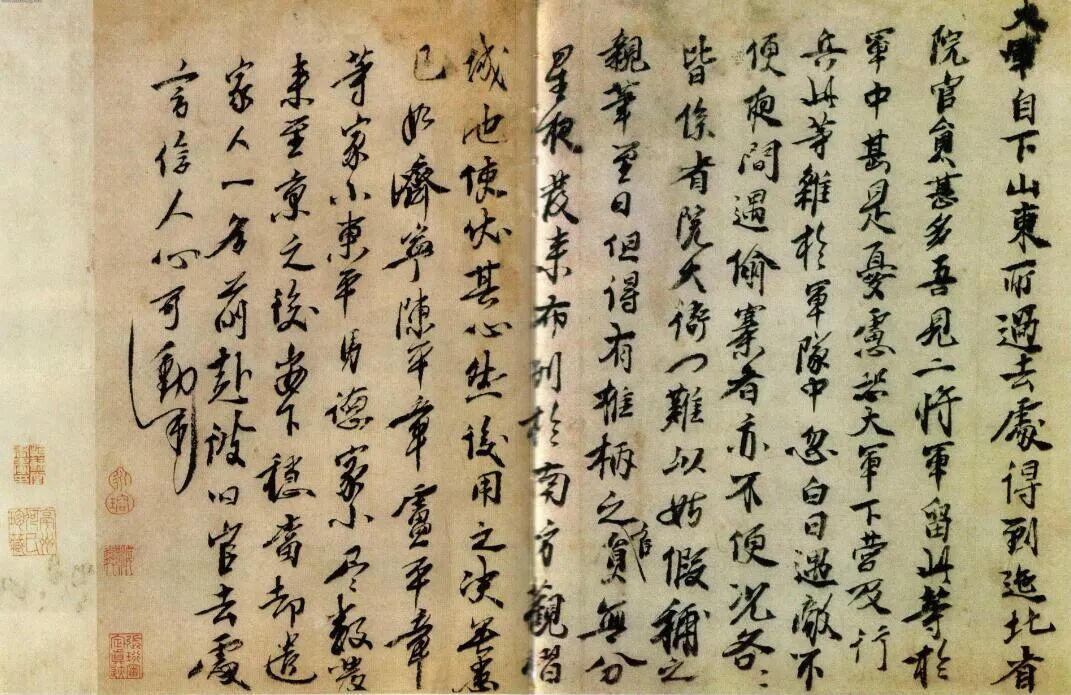 大軍自下山東所過去處得到迤北省
院官員甚多吾見二將軍留此等於
軍中甚是憂慮恐大軍下營及行
兵此等雜於軍隊中忽白日遇敵不
便夜間遇偷寨者亦不便況各〻
皆係省院大衙門難以姑假補之
親筆至日但得有權柄之官員無分
星夜發來布列於南方觀
城池使伏其心然後用之決無患
已如濟寧陳平章盧平章
等家小東平馬德家小盡數發
來至京之後安下穩當却遣
家人一名前赴彼旧官去處
言信人心可動
亳州何氏珍藏